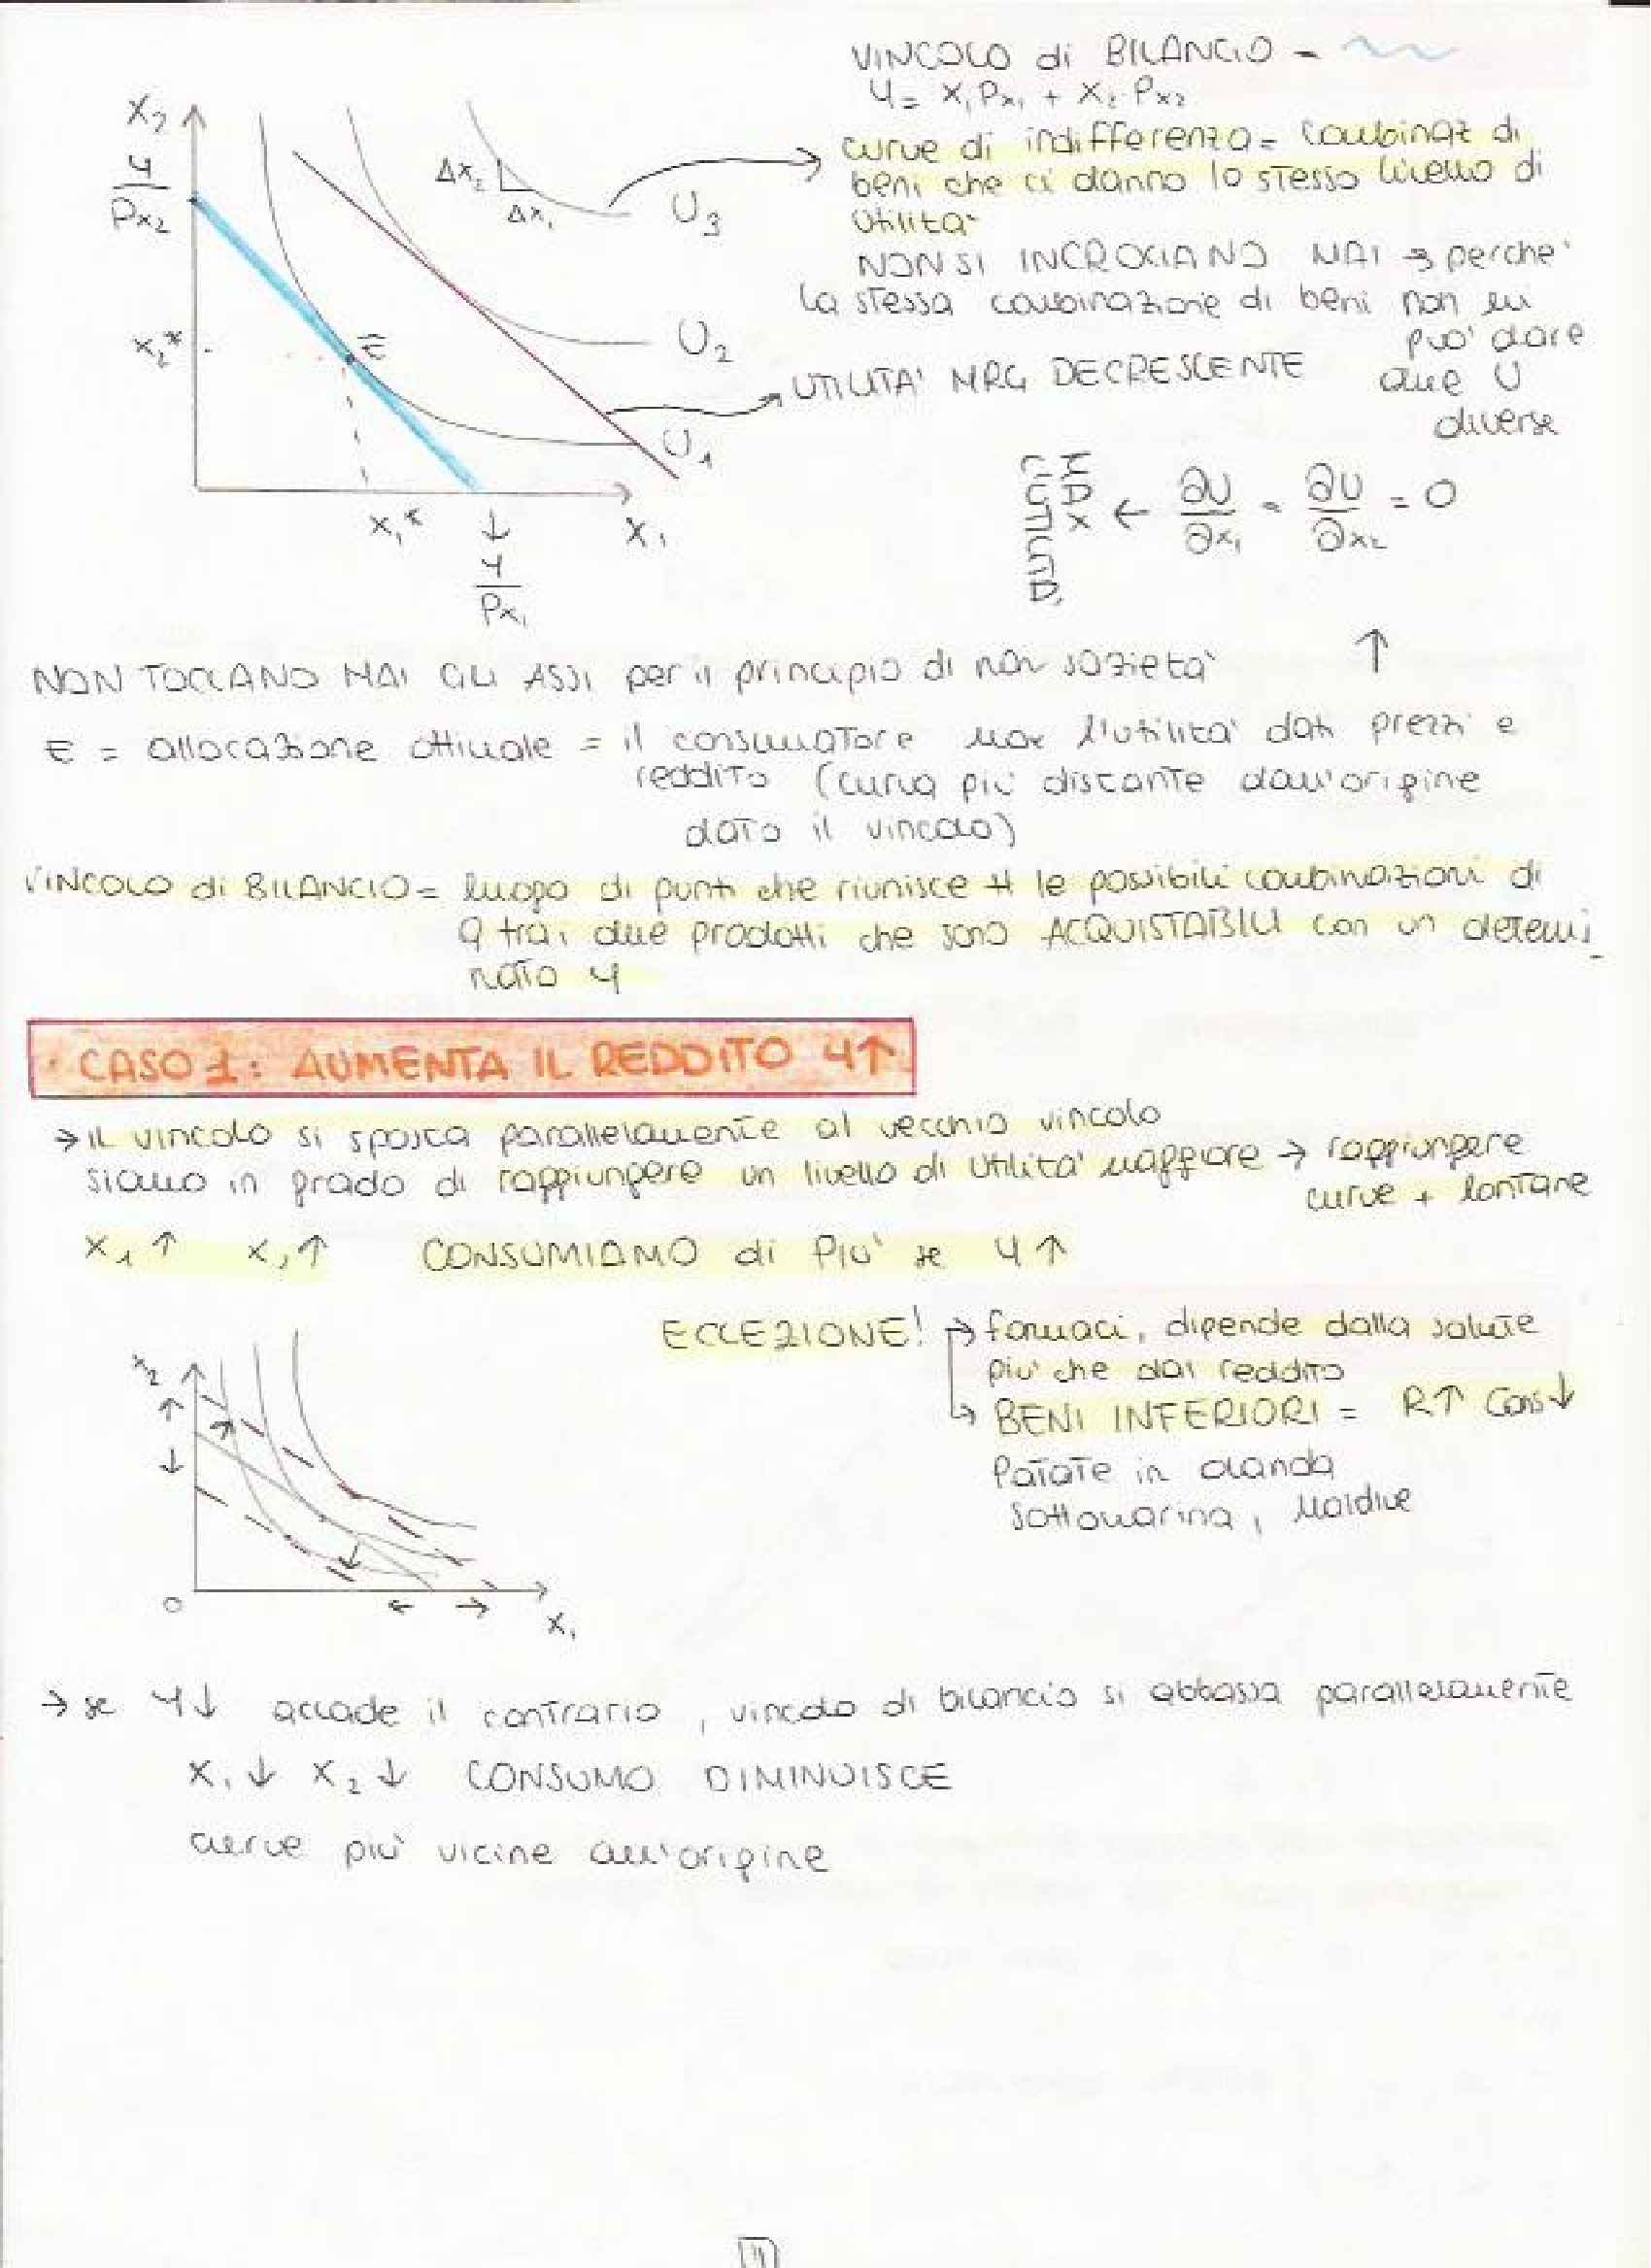 VINCOLO di BILANCIO =
Y = X₁Px₁ + X₂·Px₂
curve di indifferenza = combinaz di
beni che ci danno lo stesso livello di
utilità
NON SI INCROCIANO MAI → perchè
la stessa combinazione di beni non mi
può dare
due U
diverse
UTILITA' MRG DECRESCENTE
X₂
Y
Px₂
Δx₂
Δx₁
U₃
X₂*
E
U₂
U₁
X₁*
↓
X₁
Y
Px₁
MAX UTILITA'
← ∂U/∂x₁ = ∂U/∂x₂ = 0
↑
NON TOCCANO MAI GLI ASSI per il principio di non sazietà
E = allocazione ottimale = il consumatore max l'utilità dati prezzi e
reddito (curva più distante dall'origine
dato il vincolo)
VINCOLO di BILANCIO = luogo di punti che riunisce tt le possibili combinazioni di
q tra i due prodotti che sono ACQUISTABILI con un determi_
nato Y
· CASO 1: AUMENTA IL REDDITO Y↑
→ IL vincolo si sposta parallelamente al vecchio vincolo
siamo in grado di raggiungere un livello di utilità maggiore → raggiungere
curve + lontane
X₁↑ X₂↑ CONSUMIAMO di PIU' se Y↑
ECCEZIONE! → farmaci, dipende dalla salute
più che dal reddito
→ BENI INFERIORI = R↑ Cons↓
Patate in olanda
Sottomarina, Maldive
X₂
↑
↓
0
← →
X₁
→ se Y↓ accade il contrario, vincolo di bilancio si abbassa parallelamente
X₁↓ X₂↓ CONSUMO DIMINUISCE
curve più vicine all'origine